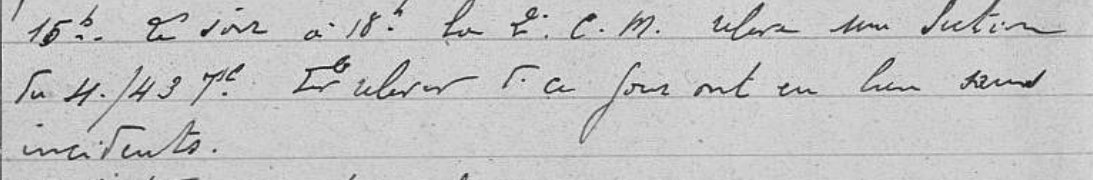 15h. Le soir à 18h la 2e C. M. relève une Section
du 4./43 Tal. Les relèves de ce jour ont eu lieu sans
incidents.